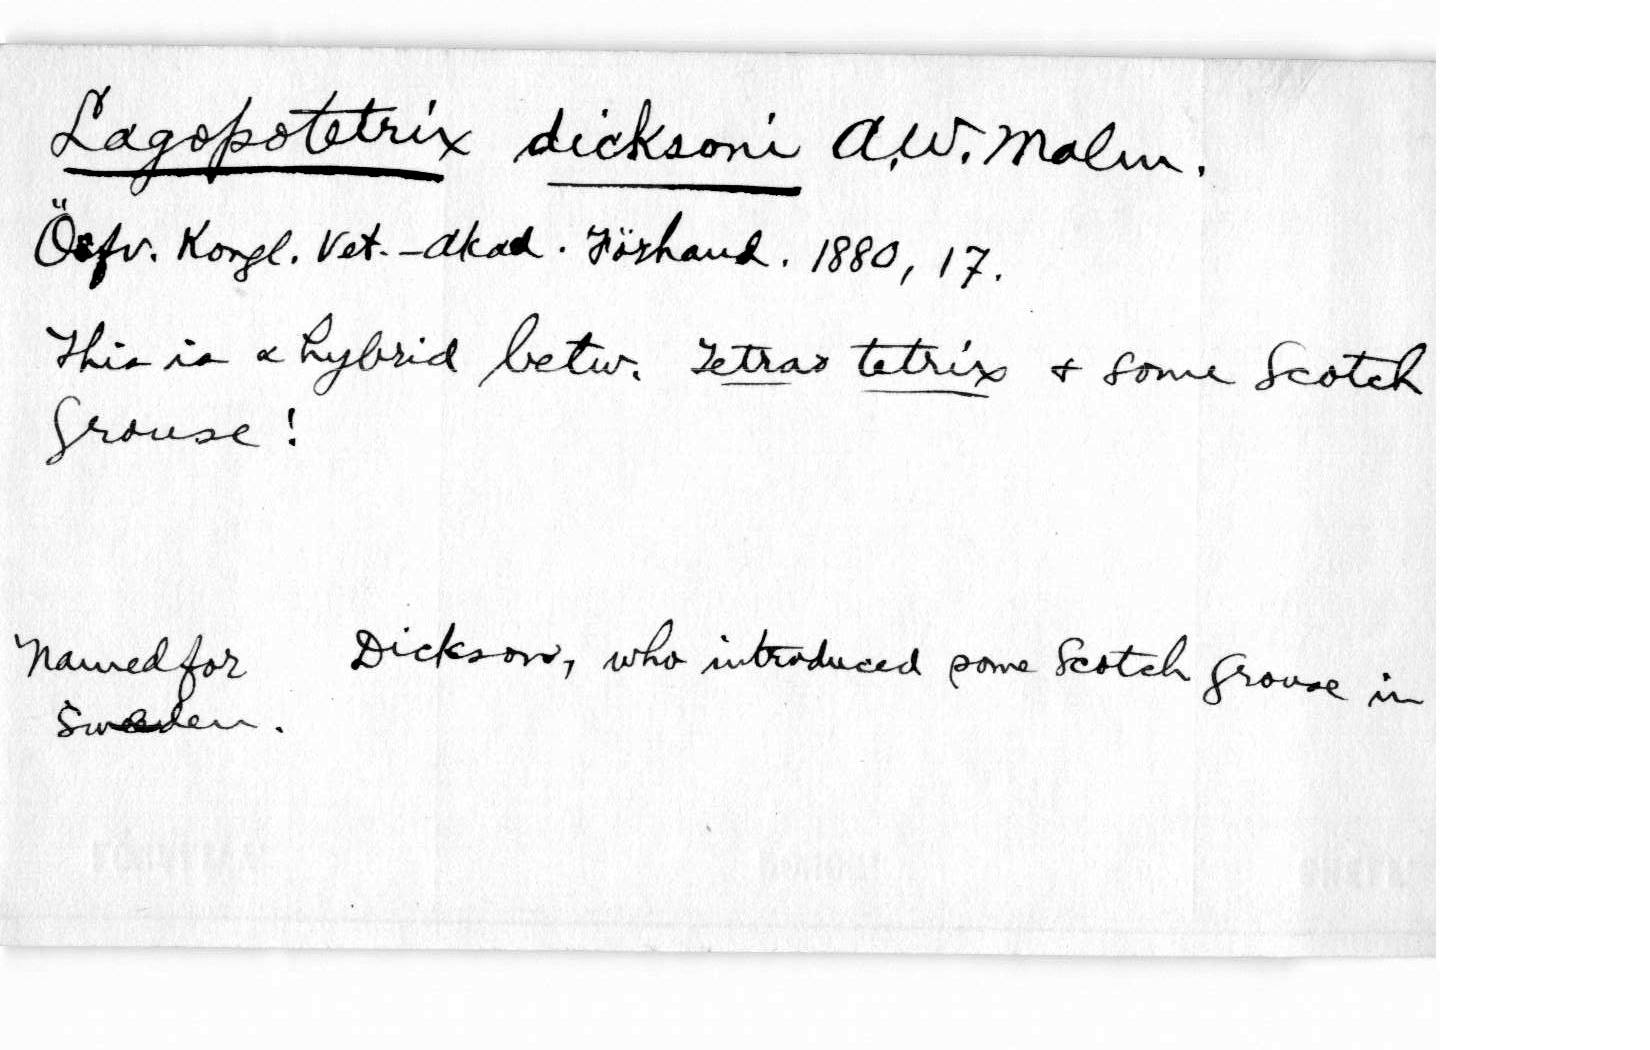 Lagopotetrix dicksoni A.W. Malm.
Öefv. Kongl. Vet.-Akad. Förhand. 1880, 17.
This is a hybrid betw. Tetrao tetrix & some Scotch
Grouse!
Named for Dickson, who introduced some Scotch Grouse in
Sweden.